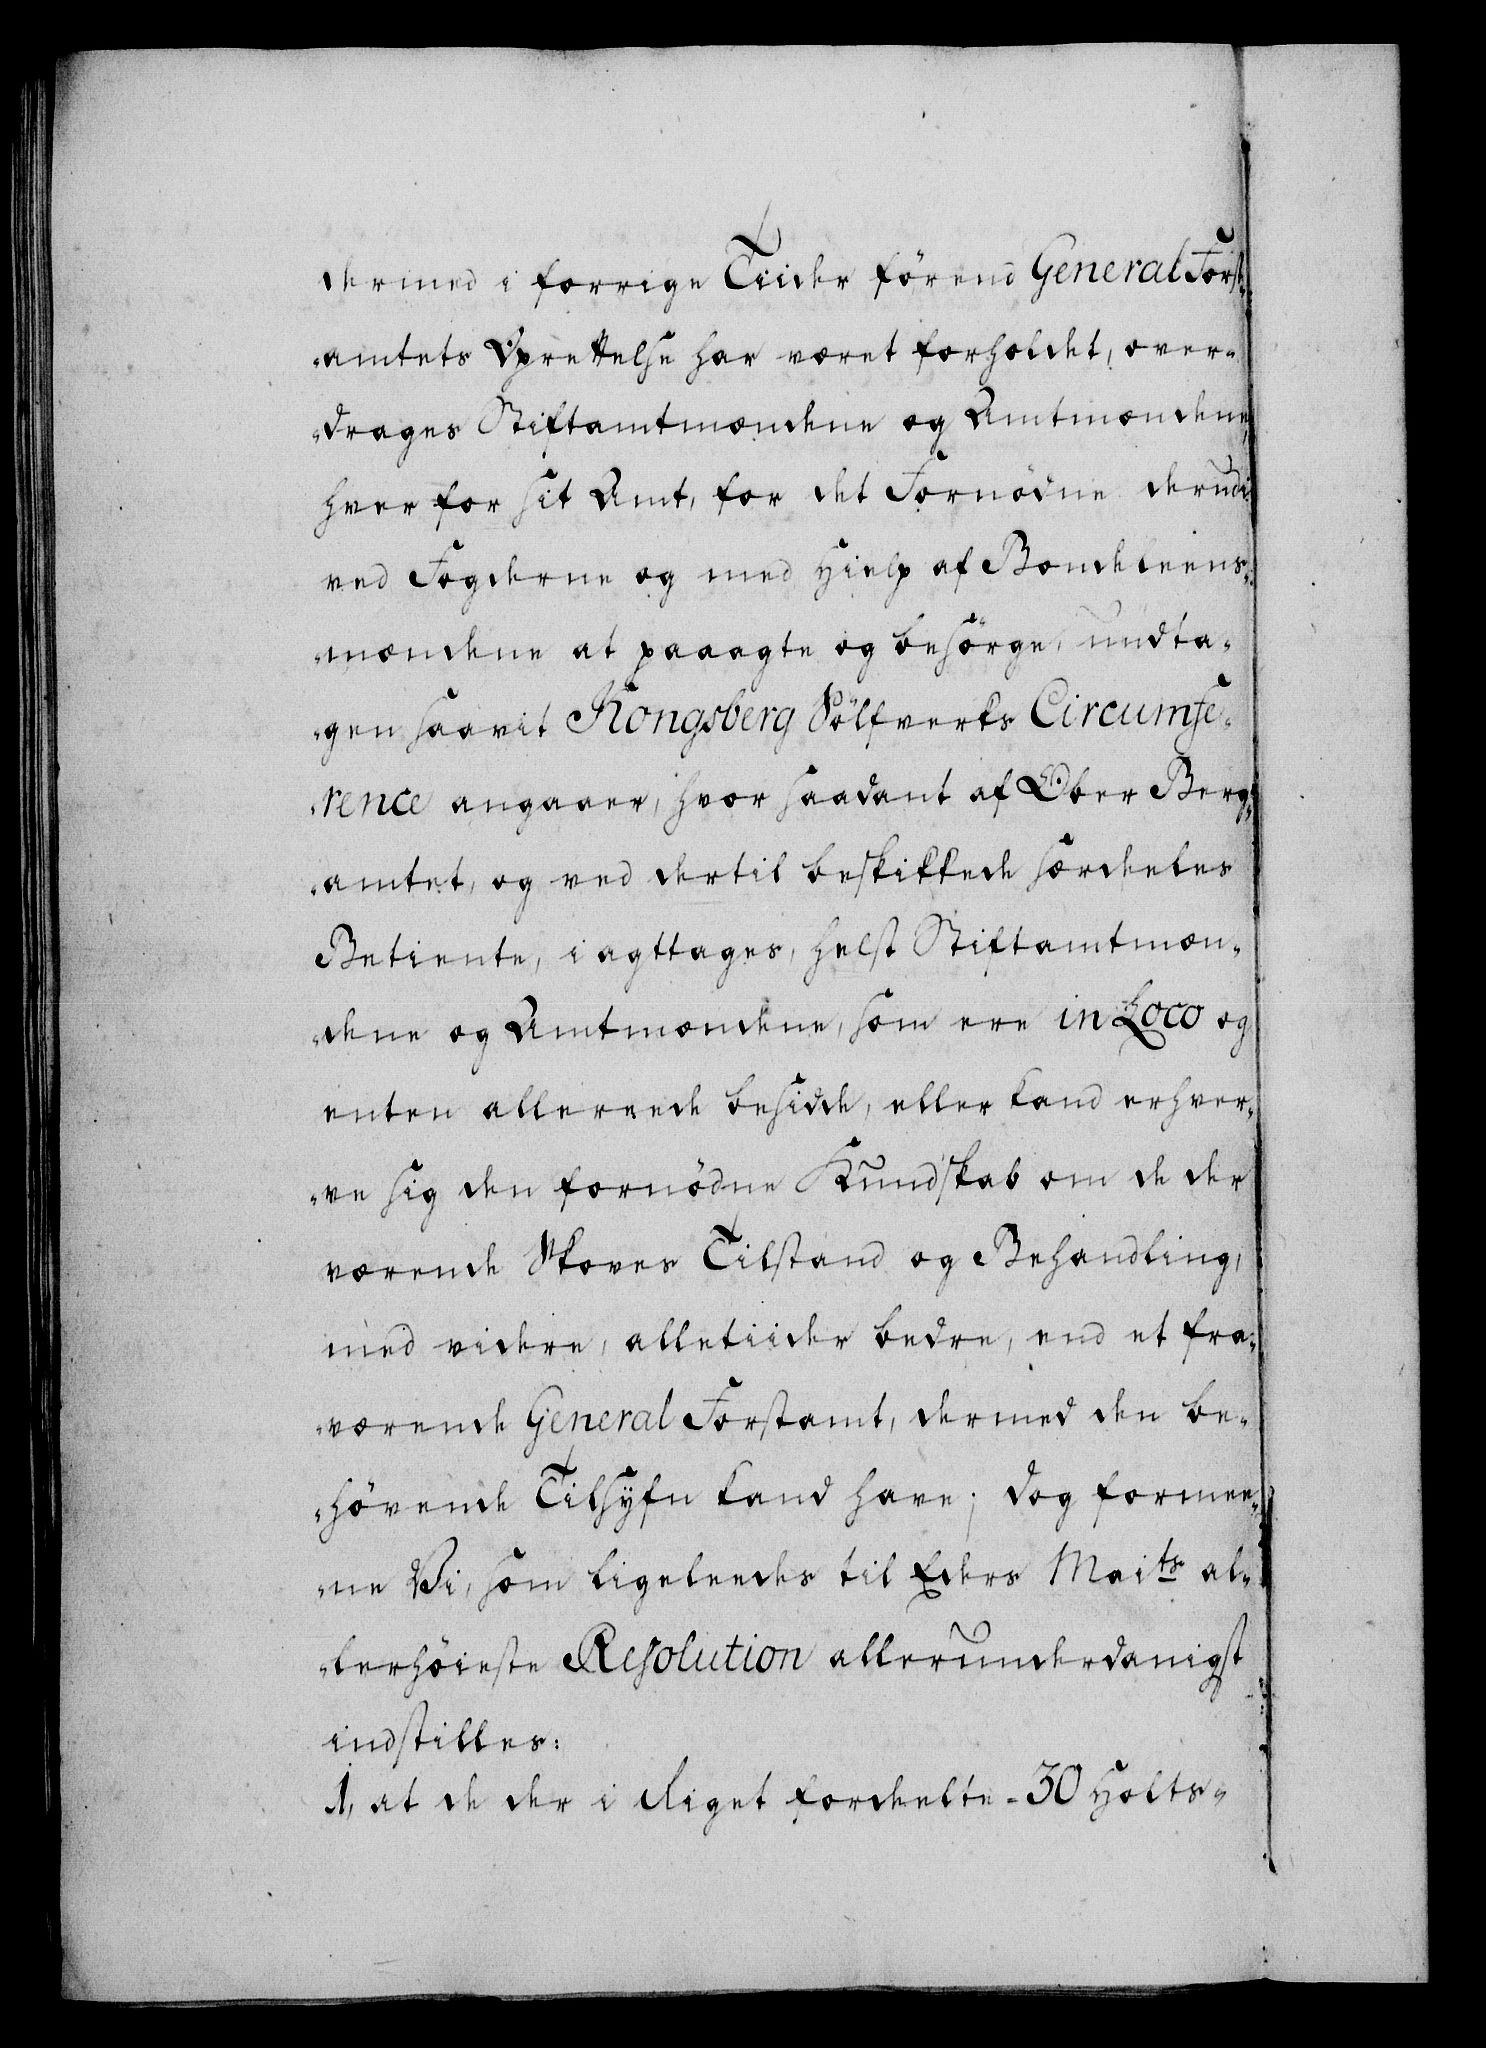 dermed i forrige Tiider förend General Forst-
amtets Oprettelse har været forholdet, over-
drages Stiftamtmændene og Amtmændene,
hver for sit Amt, for det Fornödne derudi
ved Fogderne og med Hielp af Bondeleens-
mændene at paaagte og besörge, undta-
gen saavit Kongsberg Sölfverks Circumfe-
rence angaaer, hvor saadant af Ober Berg-
amtet, og ved dertil beskikkede særdeeles
Betiente, i agttages, helst Stiftamtmæn-
dene og Amtmændene, som ere in Loco og
enten allereede besidde, eller kand erhver-
ve sig den fornödne Kundskab om de der
værende Skoves Tilstand og Behandling,
med videre, alletiider bedre, end et fra-
værende General Forstamt, dermed den be-
hövende Tilsyfn kand have; dog formee-
ne Vi, som ligeleedes til Eders Maits al-
lerhöieste Resolution allerunderdanigst
indstilles:
1, at de der i Riget fordeelte 30 Holts-